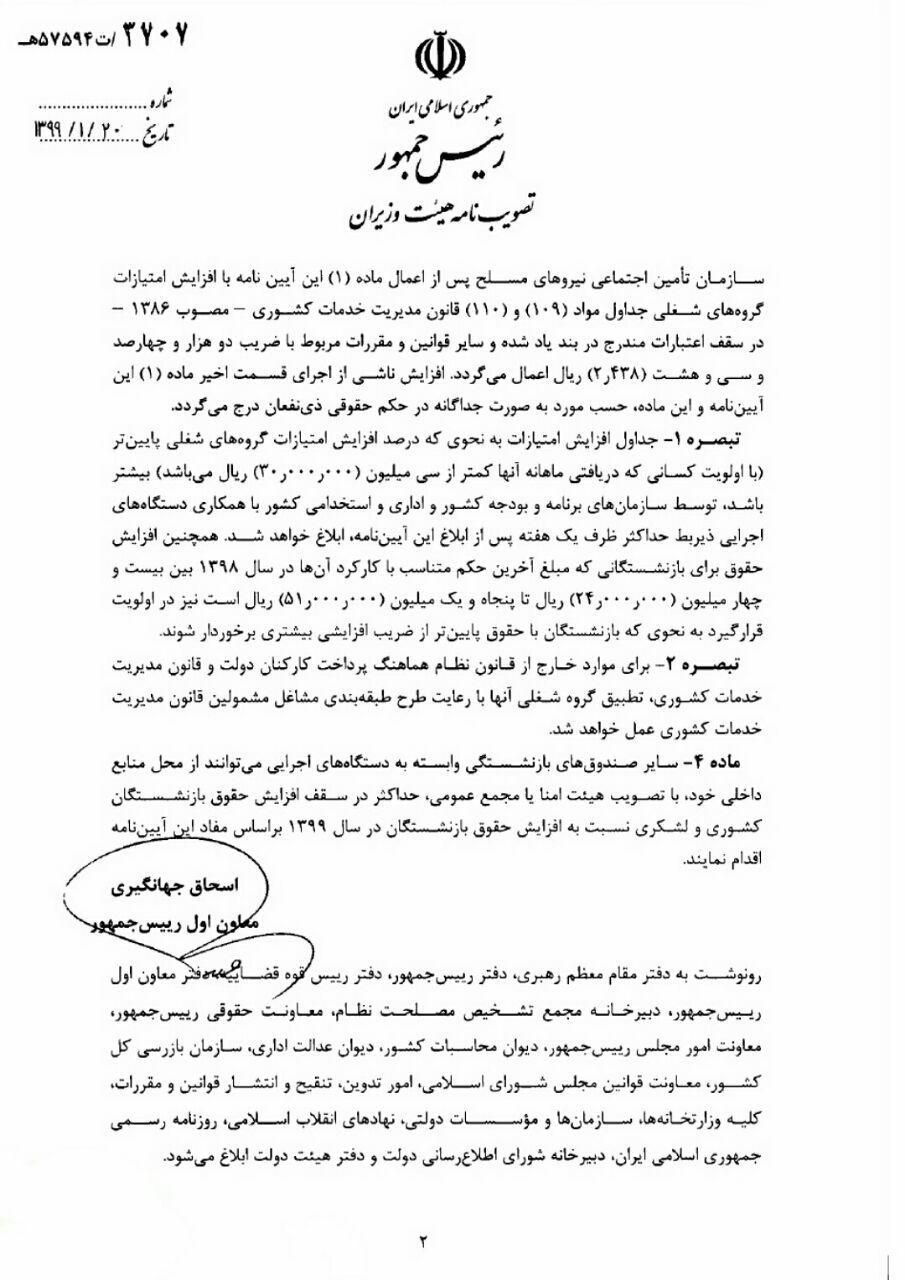 ۳۷۰۷/ت۵۷۵۹۴هـ
جمهوری اسلامی ایران
رئیس جمهور
تصویب نامه هیئت وزیران
شماره ......................
تاریخ ....۱۳۹۹/۱/۲۰
سازمان تأمین اجتماعی نیروهای مسلح پس از اعمال ماده (۱) این آیین نامه با افزایش امتیازات
گروه‌های شغلی جداول مواد (۱۰۹) و (۱۱۰) قانون مدیریت خدمات کشوری – مصوب ۱۳۸۶ –
در سقف اعتبارات مندرج در بند یاد شده و سایر قوانین و مقررات مربوط با ضریب دو هزار و چهارصد
و سی و هشت (۲٫۴۳۸) ریال اعمال می‌گردد. افزایش ناشی از اجرای قسمت اخیر ماده (۱) این
آیین‌نامه و این ماده، حسب مورد به صورت جداگانه در حکم حقوقی ذی‌نفعان درج می‌گردد.
تبصره ۱- جداول افزایش امتیازات به نحوی که درصد افزایش امتیازات گروه‌های شغلی پایین‌تر
(با اولویت کسانی که دریافتی ماهانه آنها کمتر از سی میلیون (۳۰٫۰۰۰٫۰۰۰) ریال می‌باشد) بیشتر
باشد، توسط سازمان‌های برنامه و بودجه کشور و اداری و استخدامی کشور با همکاری دستگاه‌های
اجرایی ذیربط حداکثر ظرف یک هفته پس از ابلاغ این آیین‌نامه، ابلاغ خواهد شد. همچنین افزایش
حقوق برای بازنشستگانی که مبلغ آخرین حکم متناسب با کارکرد آن‌ها در سال ۱۳۹۸ بین بیست و
چهار میلیون (۲۴٫۰۰۰٫۰۰۰) ریال تا پنجاه و یک میلیون (۵۱٫۰۰۰٫۰۰۰) ریال است نیز در اولویت
قرارگیرد به نحوی که بازنشستگان با حقوق پایین‌تر از ضریب افزایشی بیشتری برخوردار شوند.
تبصره ۲- برای موارد خارج از قانون نظام هماهنگ پرداخت کارکنان دولت و قانون مدیریت
خدمات کشوری، تطبیق گروه شغلی آنها با رعایت طرح طبقه‌بندی مشاغل مشمولین قانون مدیریت
خدمات کشوری عمل خواهد شد.
ماده ۴- سایر صندوق‌های بازنشستگی وابسته به دستگاه‌های اجرایی می‌توانند از محل منابع
داخلی خود، با تصویب هیئت امنا یا مجمع عمومی، حداکثر در سقف افزایش حقوق بازنشستگان
کشوری و لشکری نسبت به افزایش حقوق بازنشستگان در سال ۱۳۹۹ براساس مفاد این آیین‌نامه
اقدام نمایند.
اسحاق جهانگیری
معاون اول رییس‌جمهور
رونوشت به دفتر مقام معظم رهبری، دفتر رییس‌جمهور، دفتر رییس قوه قضاییه، دفتر معاون اول
رییس‌جمهور، دبیرخانه مجمع تشخیص مصلحت نظام، معاونت حقوقی رییس‌جمهور،
معاونت امور مجلس رییس‌جمهور، دیوان محاسبات کشور، دیوان عدالت اداری، سازمان بازرسی کل
کشور، معاونت قوانین مجلس شورای اسلامی، امور تدوین، تنقیح و انتشار قوانین و مقررات،
کلیه وزارتخانه‌ها، سازمان‌ها و مؤسسات دولتی، نهادهای انقلاب اسلامی، روزنامه رسمی
جمهوری اسلامی ایران، دبیرخانه شورای اطلاع‌رسانی دولت و دفتر هیئت دولت ابلاغ می‌شود.
۲